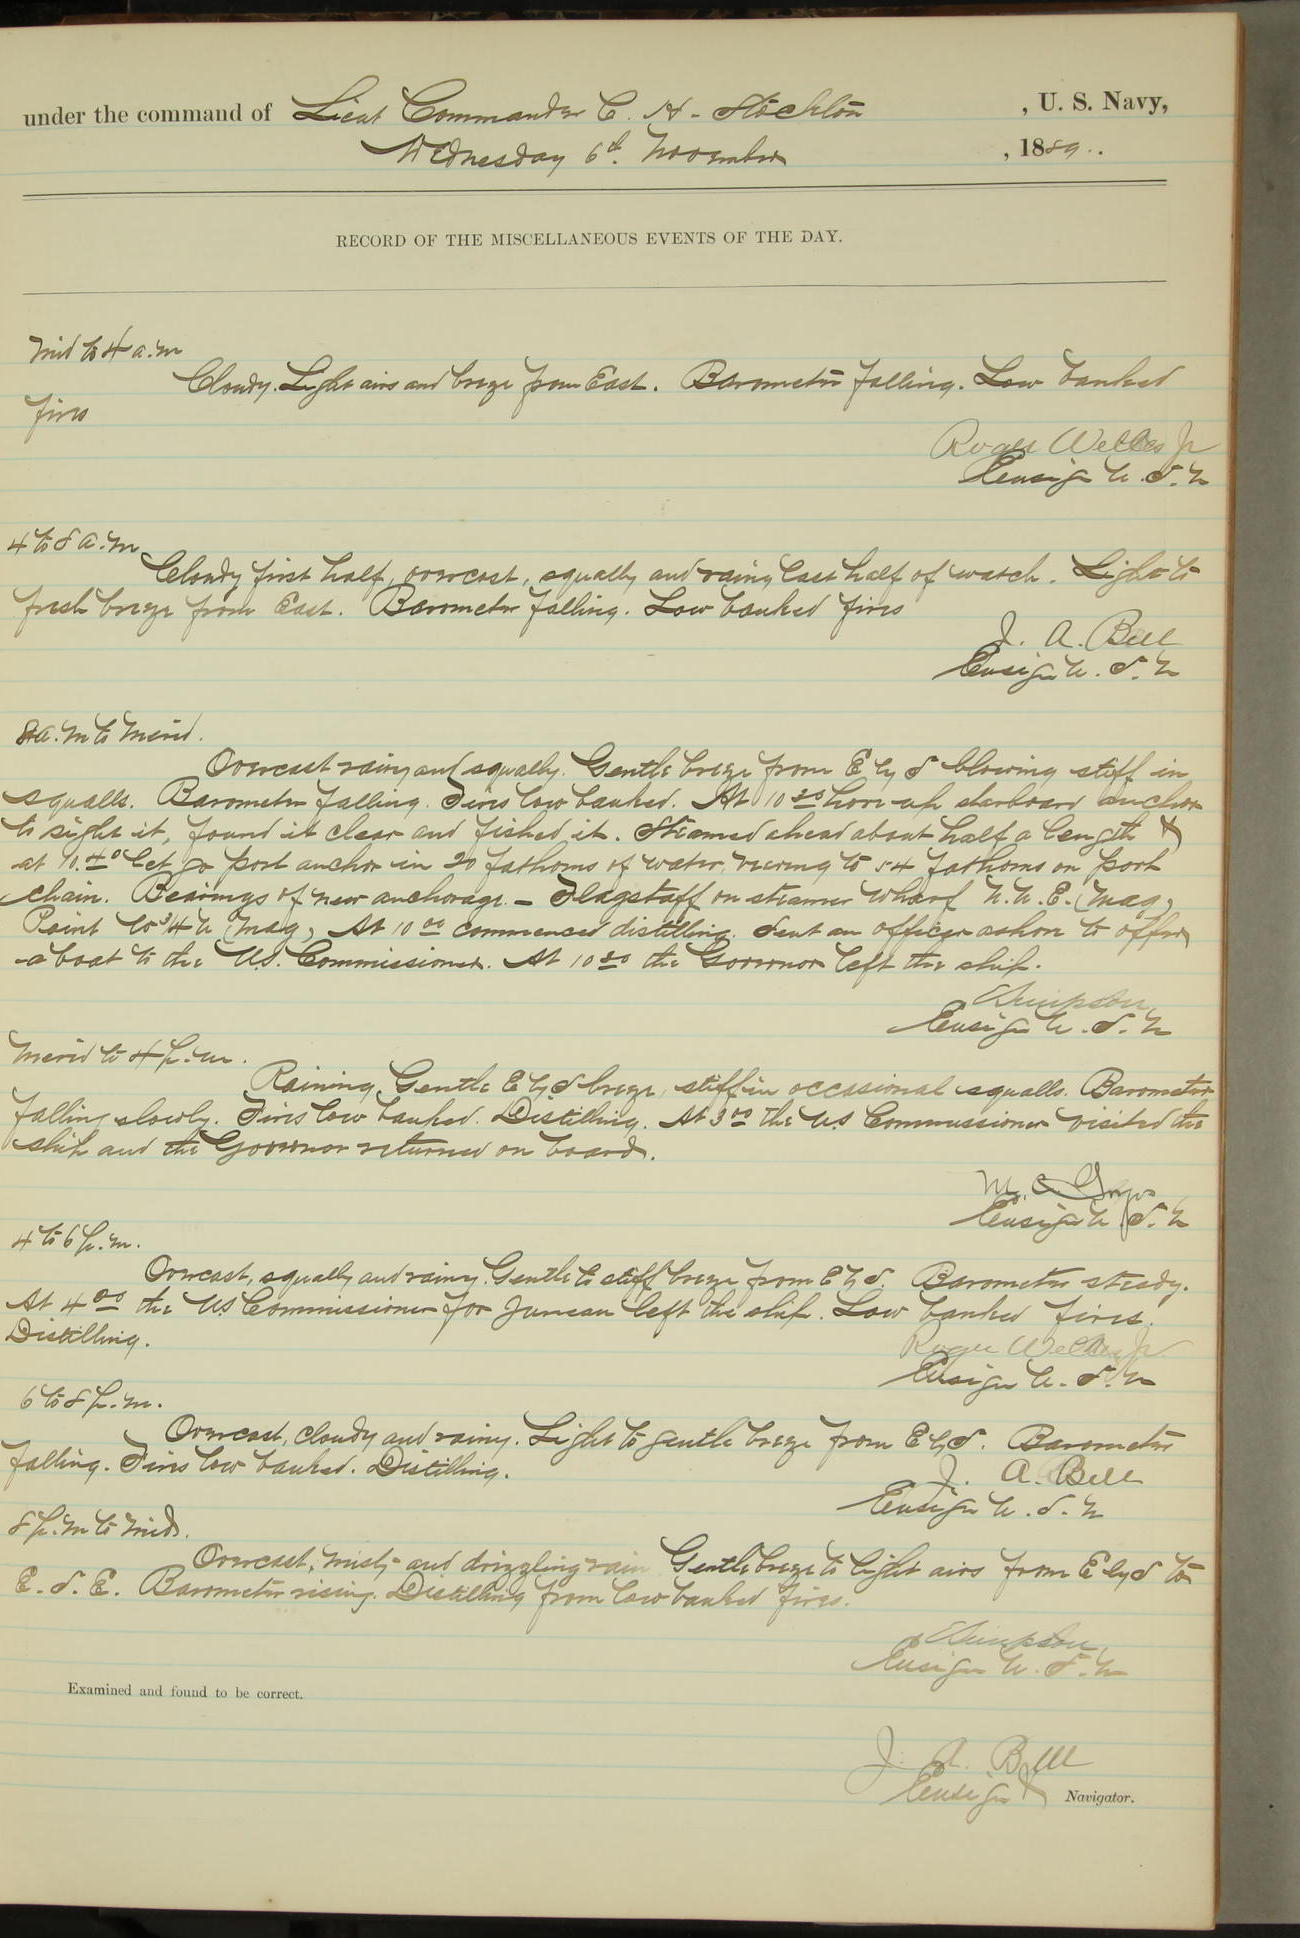 under the command of Lieut Commander C. H. Stockton , U. S. Navy,
Wednesday 6th. November , 1889..
RECORD OF THE MISCELLANEOUS EVENTS OF THE DAY.
Mid to 4 a.m
Cloudy. Light airs and breeze from East. Barometer falling. Low banked
fires
Roger Welles Jr
Ensign U.S.N
4 to 8 a.m
Cloudy first half, overcast, squally and rainy last half of watch. Light to
fresh breeze from East. Barometer falling. Low banked fires
J. A. Bell
Ensign U.S.N
8 a.m to Merid.
Overcast rainy and squally. Gentle breeze from E'ly'd blowing stiff in
squalls. Barometer falling. Fires low banked. At 10 20 hove up starboard anchor
to sight it, found it clear and fished it. Steamed ahead about half a length &
at 10.40 let go port anchor in 20 fathoms of water, veering to 54 fathoms on port
chain. Bearings of new anchorage. - Flagstaff on steamer wharf N.N.E. (mag)
Point W 3/4 N (mag), At 10 00 commenced distilling. Sent an officer ashore to offer
a boat to the U.S. Commissioner. At 10 30 the Governor left the ship.
Simpson
Ensign U.S.N
Merid to 4 p.m.
Raining. Gentle E'ly'd breeze, stiff in occasional squalls. Barometer
falling slowly. Fires low banked. Distilling. At 3 00 the U.S Commissioner visited the
ship and the Governor returned on board.
M. C.
Ensign U.S.N
4 to 6 p.m.
Overcast, squally and rainy. Gentle to stiff breeze from E'ly'd. Barometer steady.
At 4 00 the U.S Commissioner for Juneau left the ship. Low banked fires.
Distilling.
Roger Welles Jr.
Ensign U.S.N
6 to 8 p.m.
Overcast, cloudy and rainy. Light to gentle breeze from E'ly'd. Barometer
falling. Fires low banked. Distilling.
J. A. Bell
Ensign U.S.N
8 p.m to Mid.
Overcast, misty and drizzling rain Gentle breeze to light airs from E'ly'd to
E.S.E. Barometer rising. Distilling from low banked fires.
Simpson,
Ensign U.S.N
Examined and found to be correct.
J. A. Bell
Ensign & Navigator.